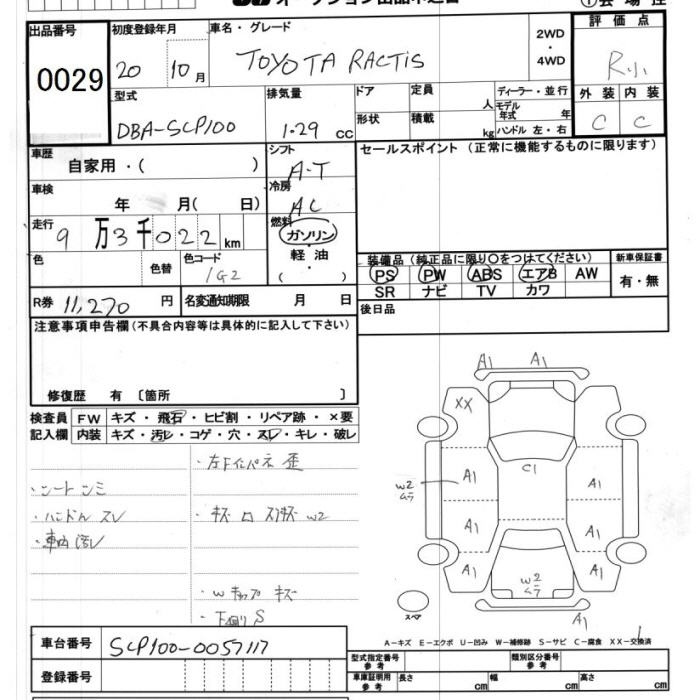 出品番号 初度登録年月 車名・グレード 2WD ・ 4WD 評価点
0029 20 10月 TOYOTA RACTIS R小
型式 排気量 ドア 定員 人 ディーラー・並行 外装 内装
DBA-SCP100 1.29 cc 形状 積載 kg モデル年式 年 ハンドル 左・右 C C
車歴 自家用・( ) シフト A-T セールスポイント (正常に機能するものに限ります)
車検 年 月( 日) 冷房 AC
走行 9万3千022km 燃料 ガソリン 軽油 ( )
色 色替 色コード 1G2
装備品 (純正品に限り○をつけてください) 新車保証書
PS PW ABS エアB AW 有・無
SR ナビ TV カワ
R券 11,270円 名変通知期限 月 日 後日品
注意事項申告欄 (不具合内容等は具体的に記入して下さい)
修復歴 有 [箇所 ]
検査員 FW キズ・飛石・ヒビ割・リペア跡・×要
記入欄 内装 キズ・汚レ・コゲ・穴・スレ・キレ・破レ
・左Fインパネ 歪
・シートシミ
・ハンドルスレ
・車内汚レ
・Wキップ キズ
・下廻りS
A1 A1
XX
C1
A1 A1
W2 ムラ
A1 A1
A1 A1
W2 ムラ
A1
スペア
A-キズ E-エクボ U-凹み W-補修跡 S-サビ C-腐食 XX-交換済
車台番号 SCP100-0057117
型式指定番号 参考 類別区分番号 参考
登録番号 車庫証明用 参考 長さ cm 幅 cm 高さ cm